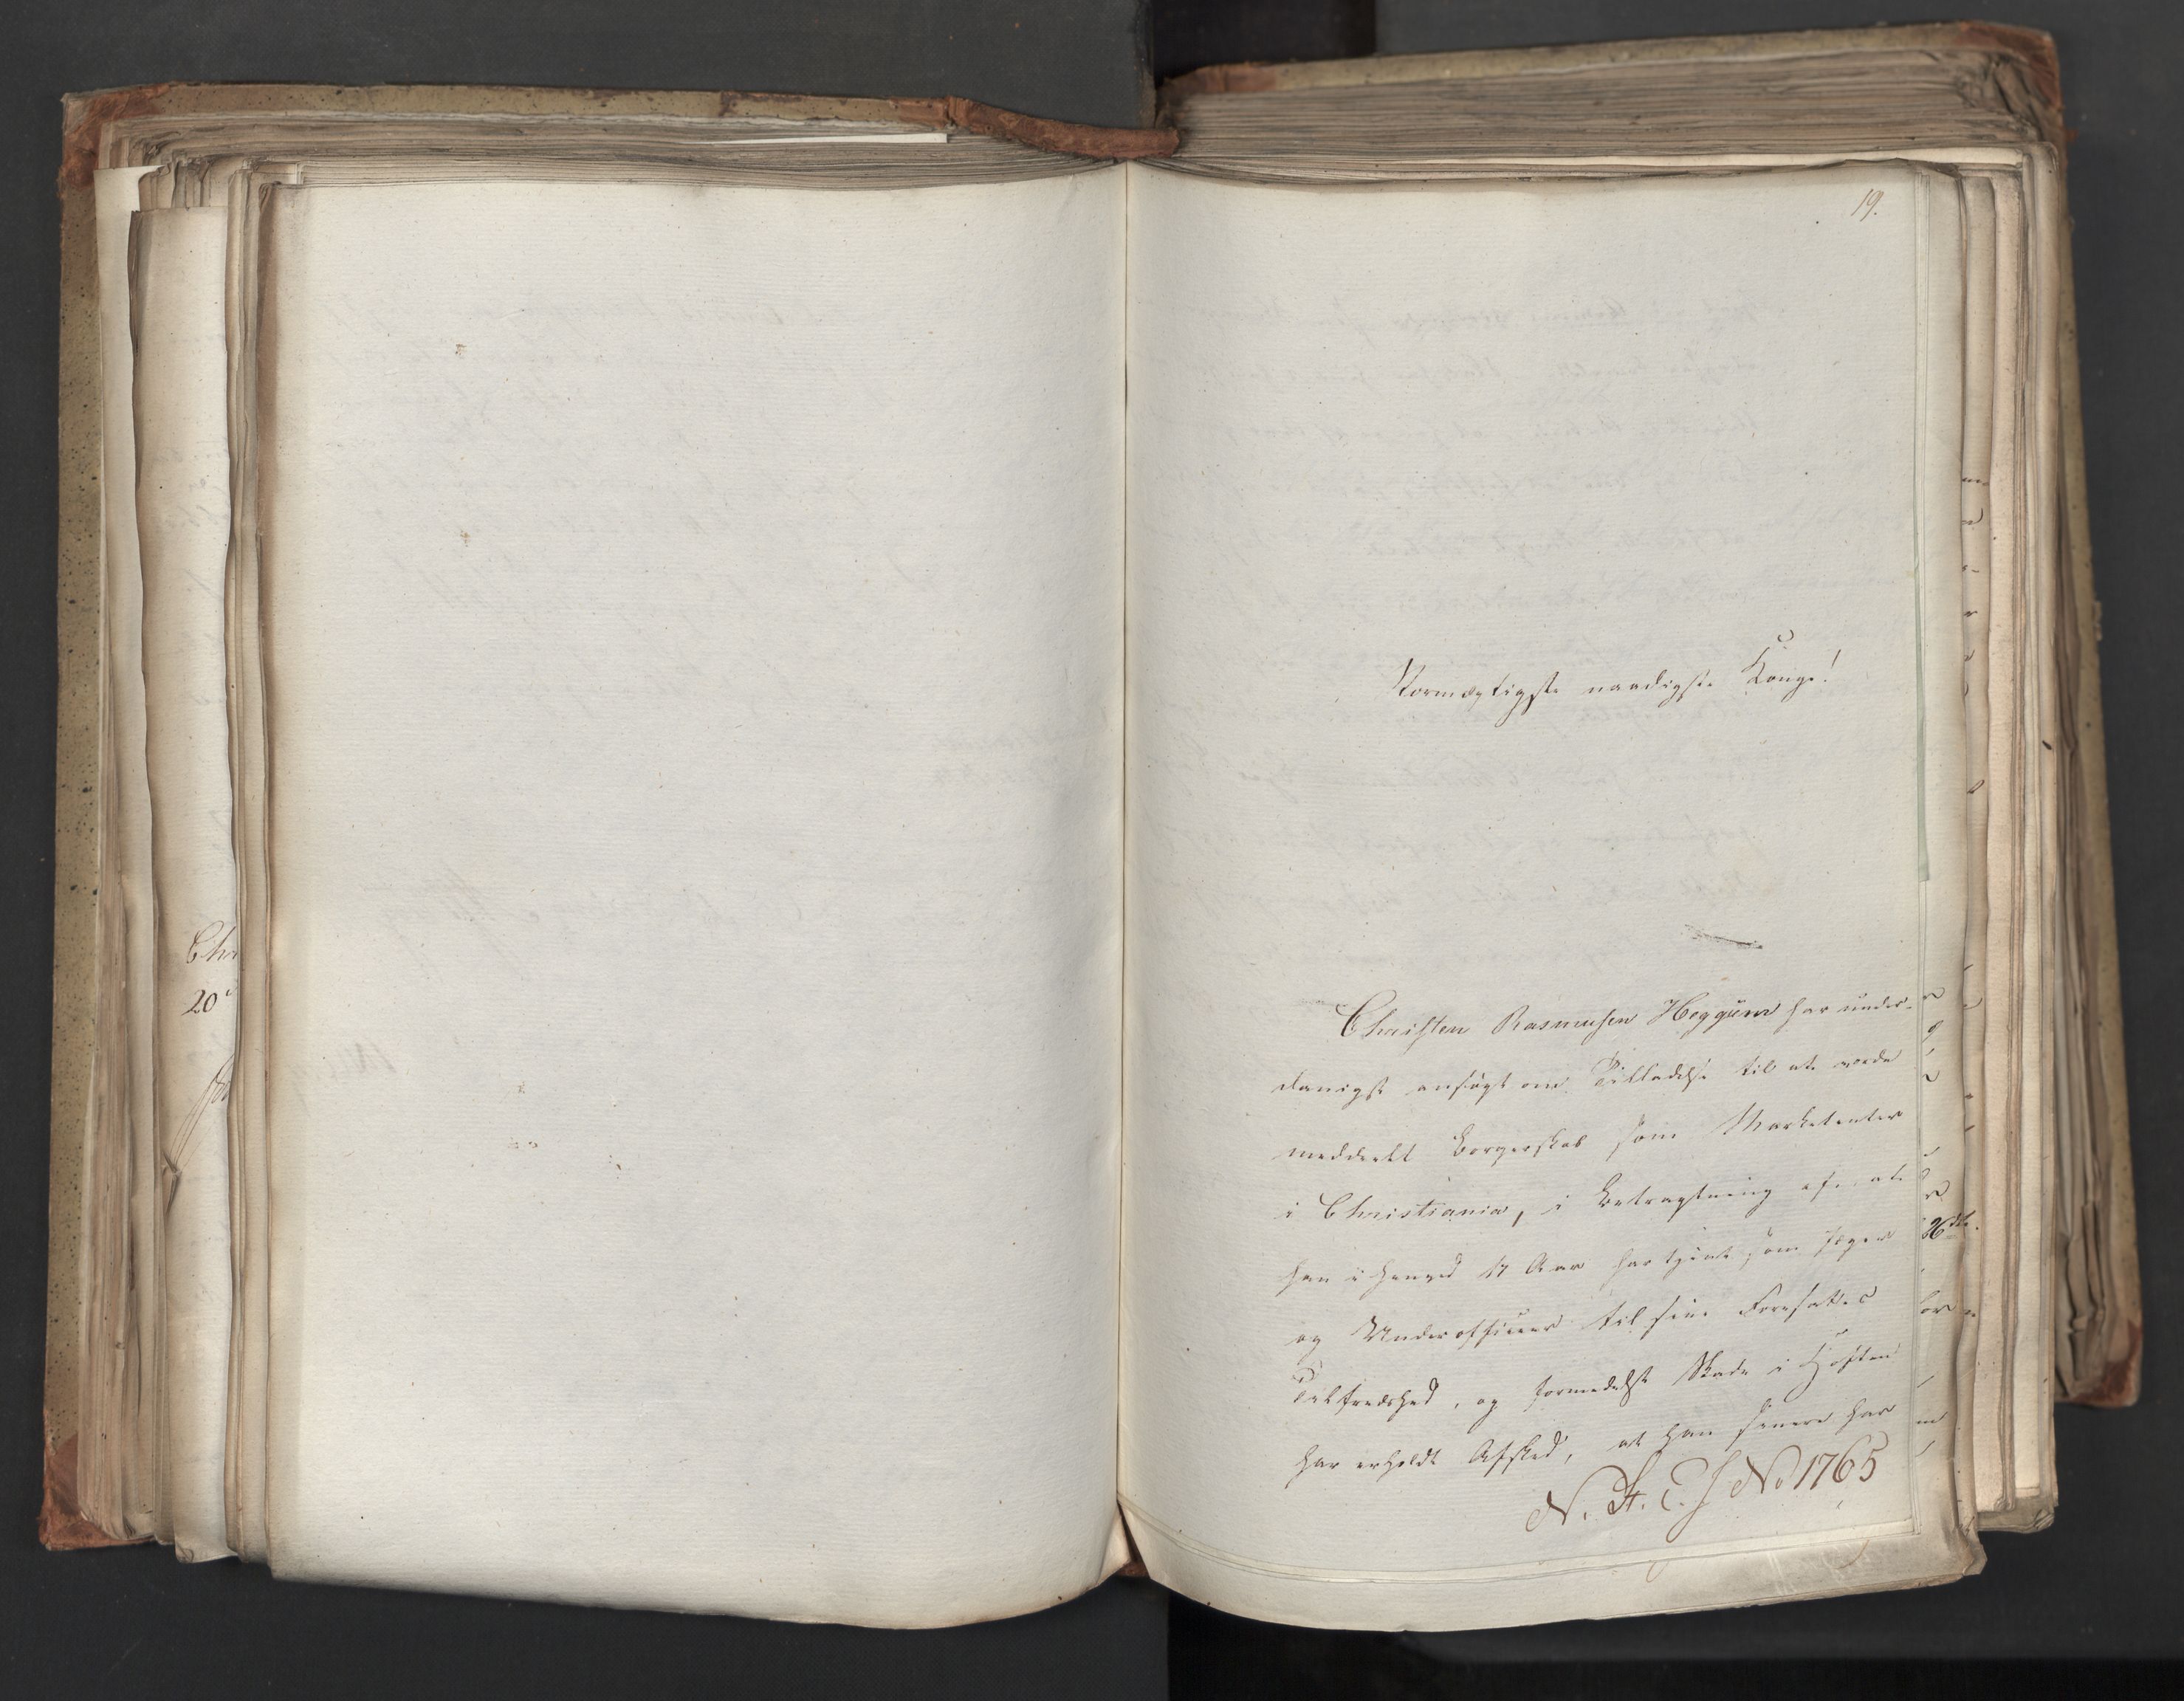 19.
Stormægtigste naadigste Konge!
Christen Rasmusen Heggum har under-
danigst ansøgt om Tilladelse til at vorde
meddeelt Borgerskab som Marketenter
i Christiania, i Betragtning af at
han i henved 17 Aar har tjent som Jæger
og Underofficeer til sine Foresattes
Tilfredshed, og formedelst Skade i Hoften
har erholdt Afsked, at han senere har
N. St. E. J No 1765
Chri
20
26de.